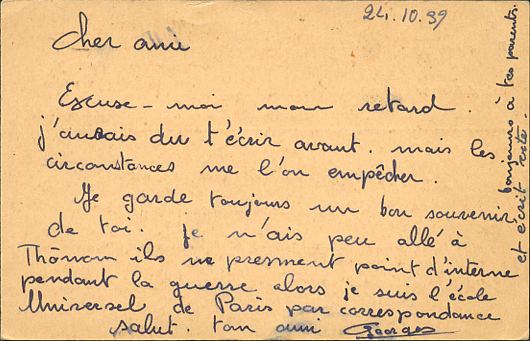 24.10.39
cher ami
Excuse-moi mon retard.
j'aurais du t'écrir avant. mais les
circonstances me l'on empêcher.
Je garde toujours un bon souvenir
de toi. je n'ais peu allé à
Thônon ils ne prennent point d'interne
pendant la guerre alors je suis l'école
Universel de Paris par correspondance
salut. ton ami Georges
bonjours à tes parents.
et écrit vite.